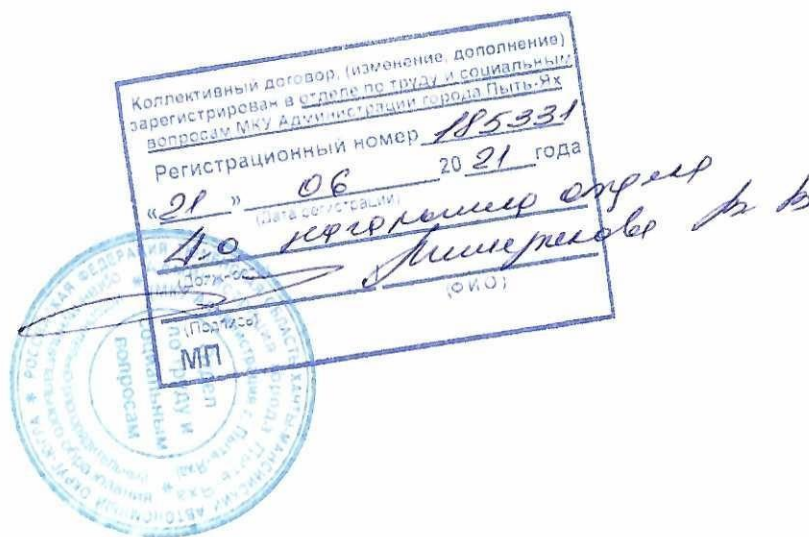 Коллективный договор, (изменение, дополнение)
зарегистрирован в отделе по труду и социальным
вопросам МКУ Администрации города Пыть-Ях
Регистрационный номер 185331
«21» 06 2021 года
(Дата регистрации)
начальника отдела
(Подпись)
(ФИО)
МП
РОССИЙСКАЯ ФЕДЕРАЦИЯ
ХАНТЫ-МАНСИЙСКИЙ АВТОНОМНЫЙ ОКРУГ-ЮГРА
отдел
по труду и
социальным
вопросам